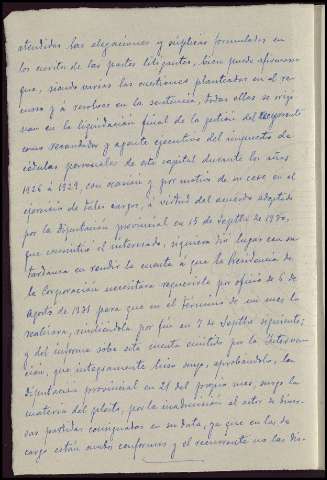 atendidas las alegaciones y súplicas formuladas en
los escritos de las partes litigantes, bien puede afirmarse
que, siendo varias las cuestiones planteadas en el re-
curso y á resolver en la sentencia, todas ellas se origi-
nan en la liquidación final de la gestión del recurrente
como recaudador y agente ejecutivo del impuesto de
cédulas personales de esta capital durante los años
1926 á 1929, con ocasión y por motivo de su cese en el
ejercicio de tales cargos, á virtud del acuerdo adoptado
por la Diputación provincial en 15 de Septbre de 1930,
que consintió el interesado, siquiera dió lugar con su
tardanza en rendir la cuenta á que la Presidencia de
la Corporación necesitara requerirle por oficio de 6 de
Agosto de 1931 para que en el término de un mes la
realizara, rindiéndola por fin en 7 de Septbre siguiente;
y del informe sobre esta cuenta emitido por la Interven-
ción, que íntegramente hizo suyo, aprobándolo, la
Diputación provincial en 28 del propio mes, surge la
materia del pleito, por la inadmisión al actor de diver-
sas partidas consignadas en su data, ya que en las de
cargo están ambos conformes y el recurrente no las dis-